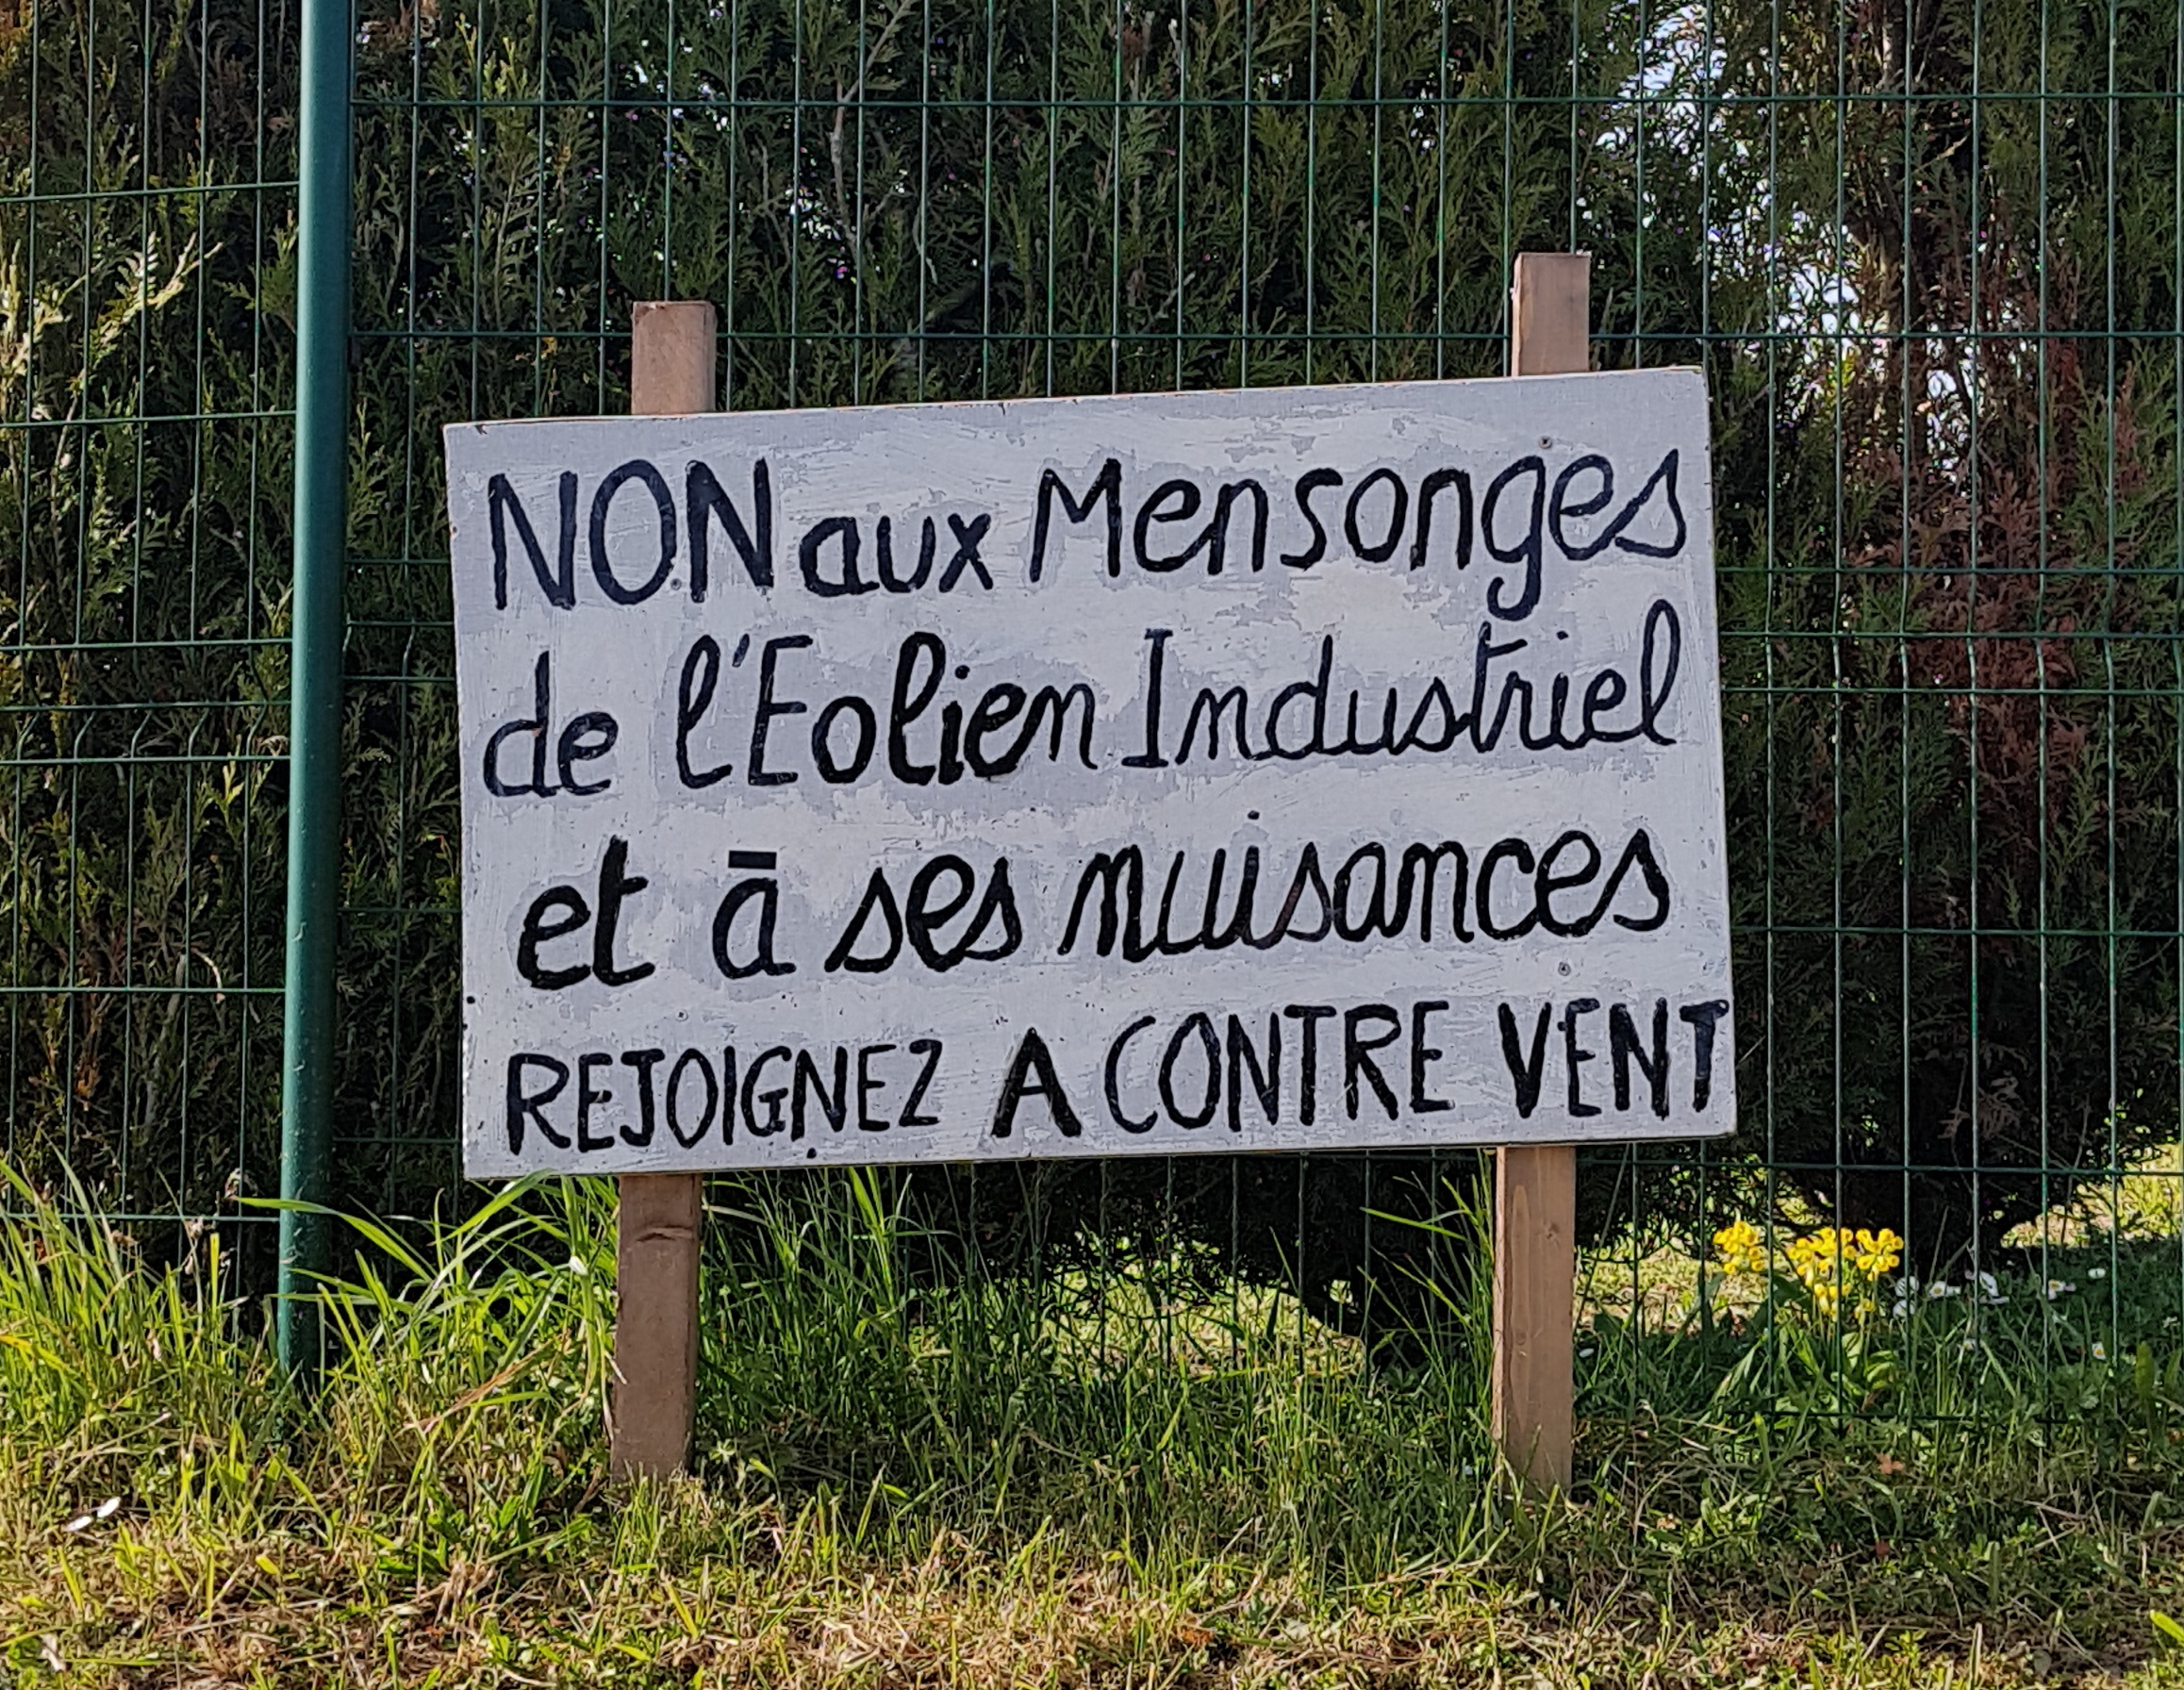 NON aux Mensonges
de l'Eolien Industriel
et ā ses nuisances
REJOIGNEZ A CONTRE VENT